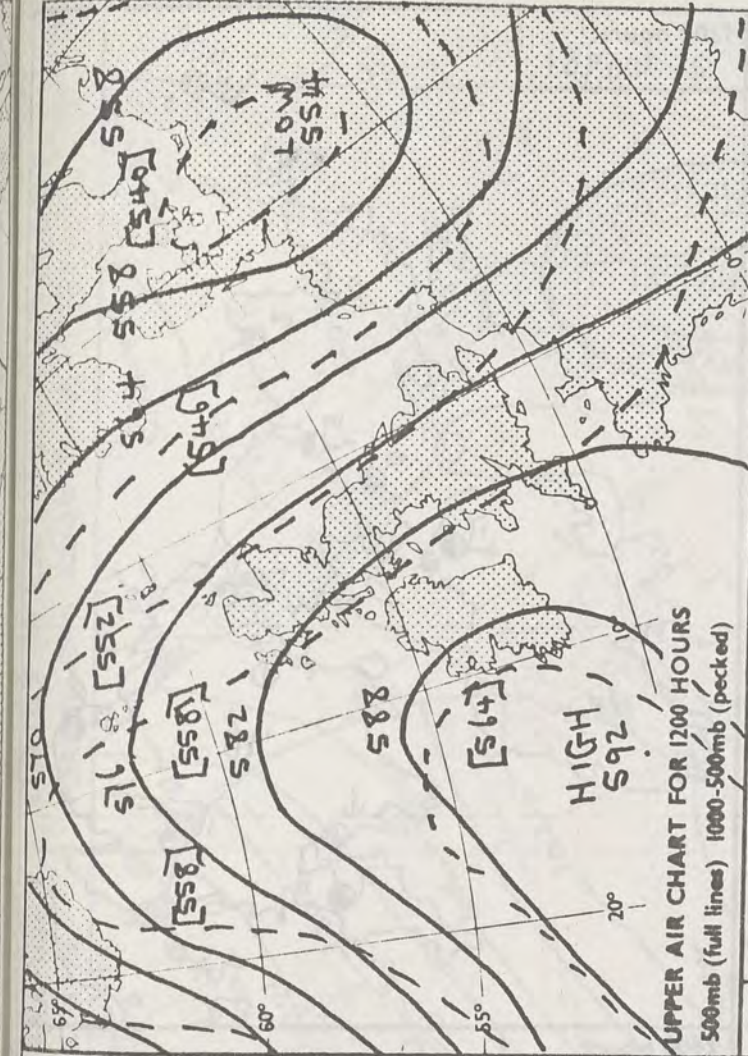 558
[540]
LOW
554
558
[546]
570
[552]
576
[558]
582
[558]
588
[564]
HIGH
592
65°
60°
55°
20°
10
0
UPPER AIR CHART FOR 1200 HOURS
500mb (full lines) 1000-500mb (pecked)